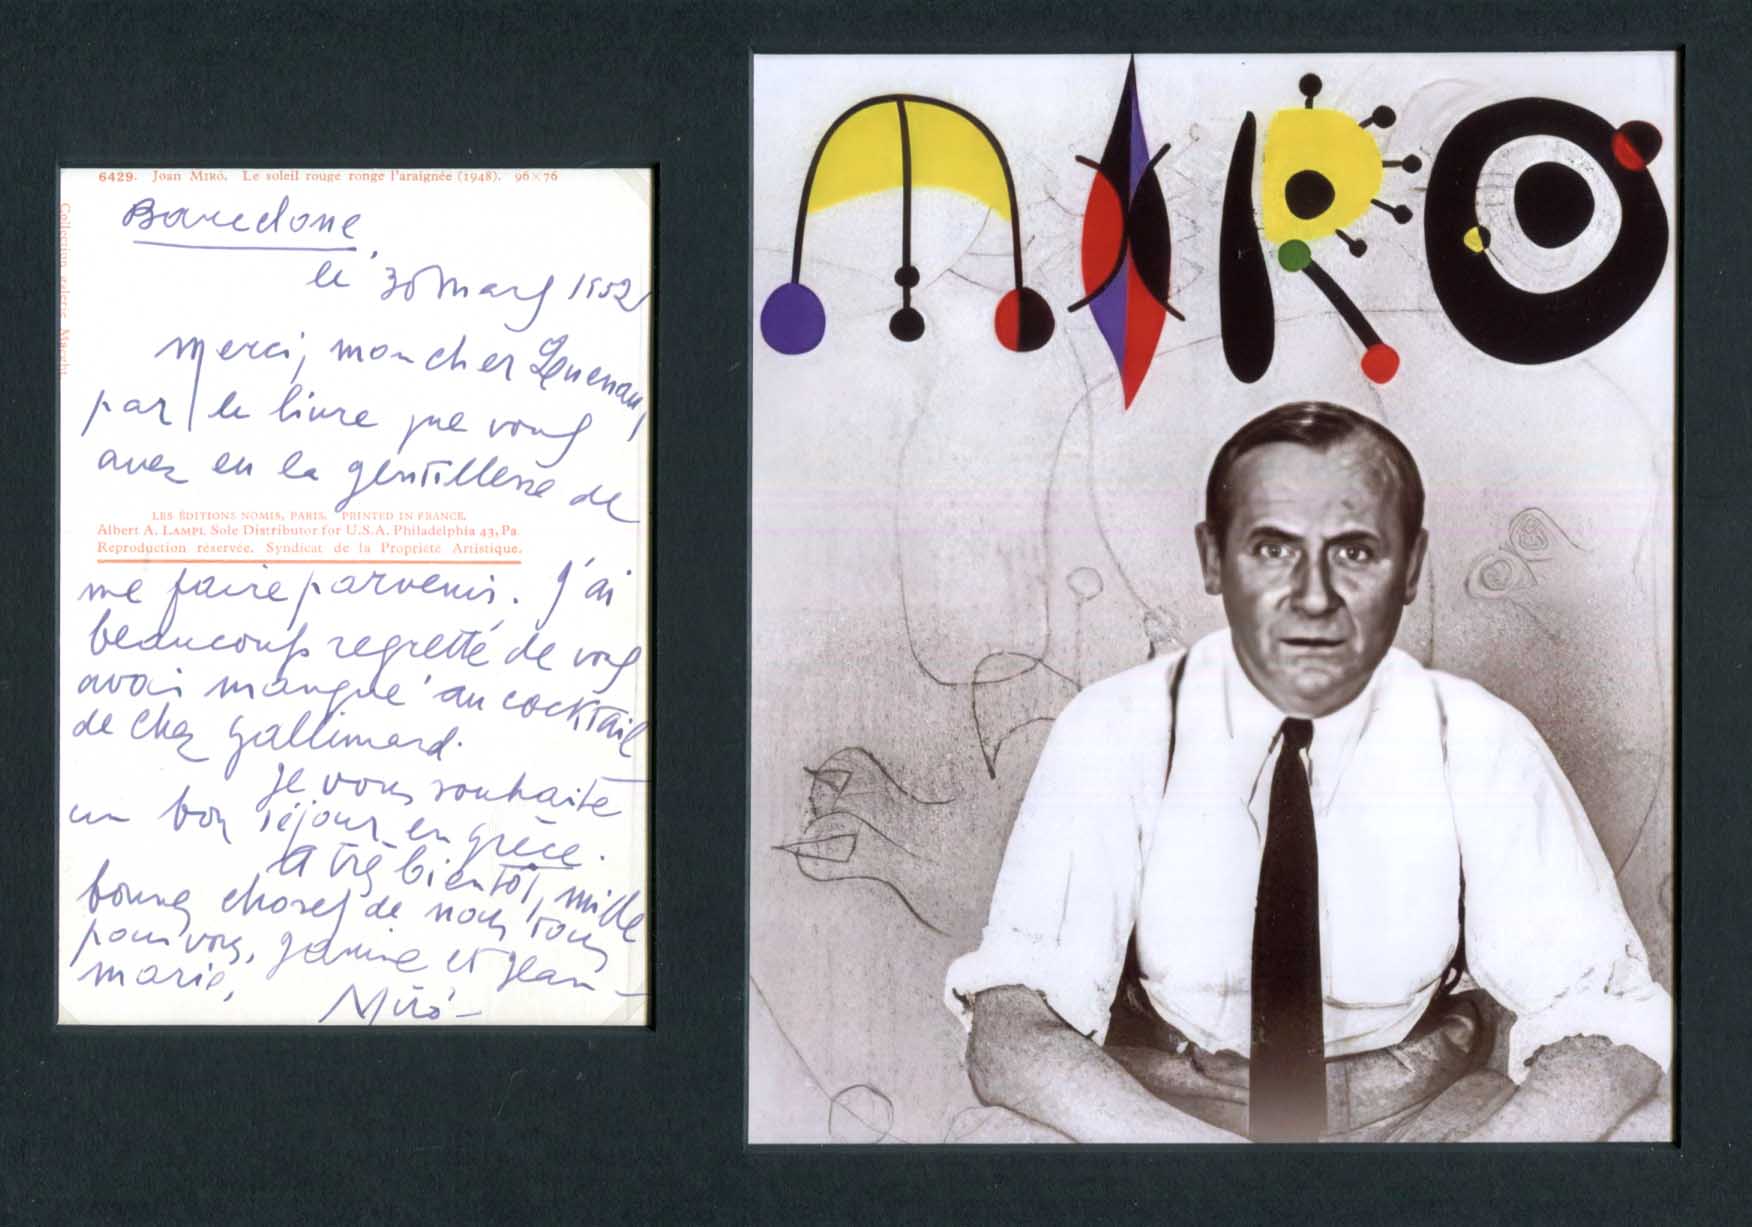 6429. Joan Miró. Le soleil rouge ronge l'araignée (1948). 96×76
Barcelone,
le 30 mars 1952
Merci, mon cher
par le livre que vous
avez eu la gentillesse de
LES ÉDITIONS NOMIS, PARIS. PRINTED IN FRANCE.
Albert A. Lampl Sole Distributor for U.S.A. Philadelphia 43, Pa.
Reproduction réservée. Syndicat de la Propriété Artistique.
me faire parvenir. J'ai
beaucoup regretté de vous
avoir manqué au cocktail
de chez Gallimard.
Je vous souhaite
un bon séjour en Grèce.
A très bientôt, mille
bonnes choses de nous tous
pour vous, Janine et Jean-
Marie,
Miró-
MIRO